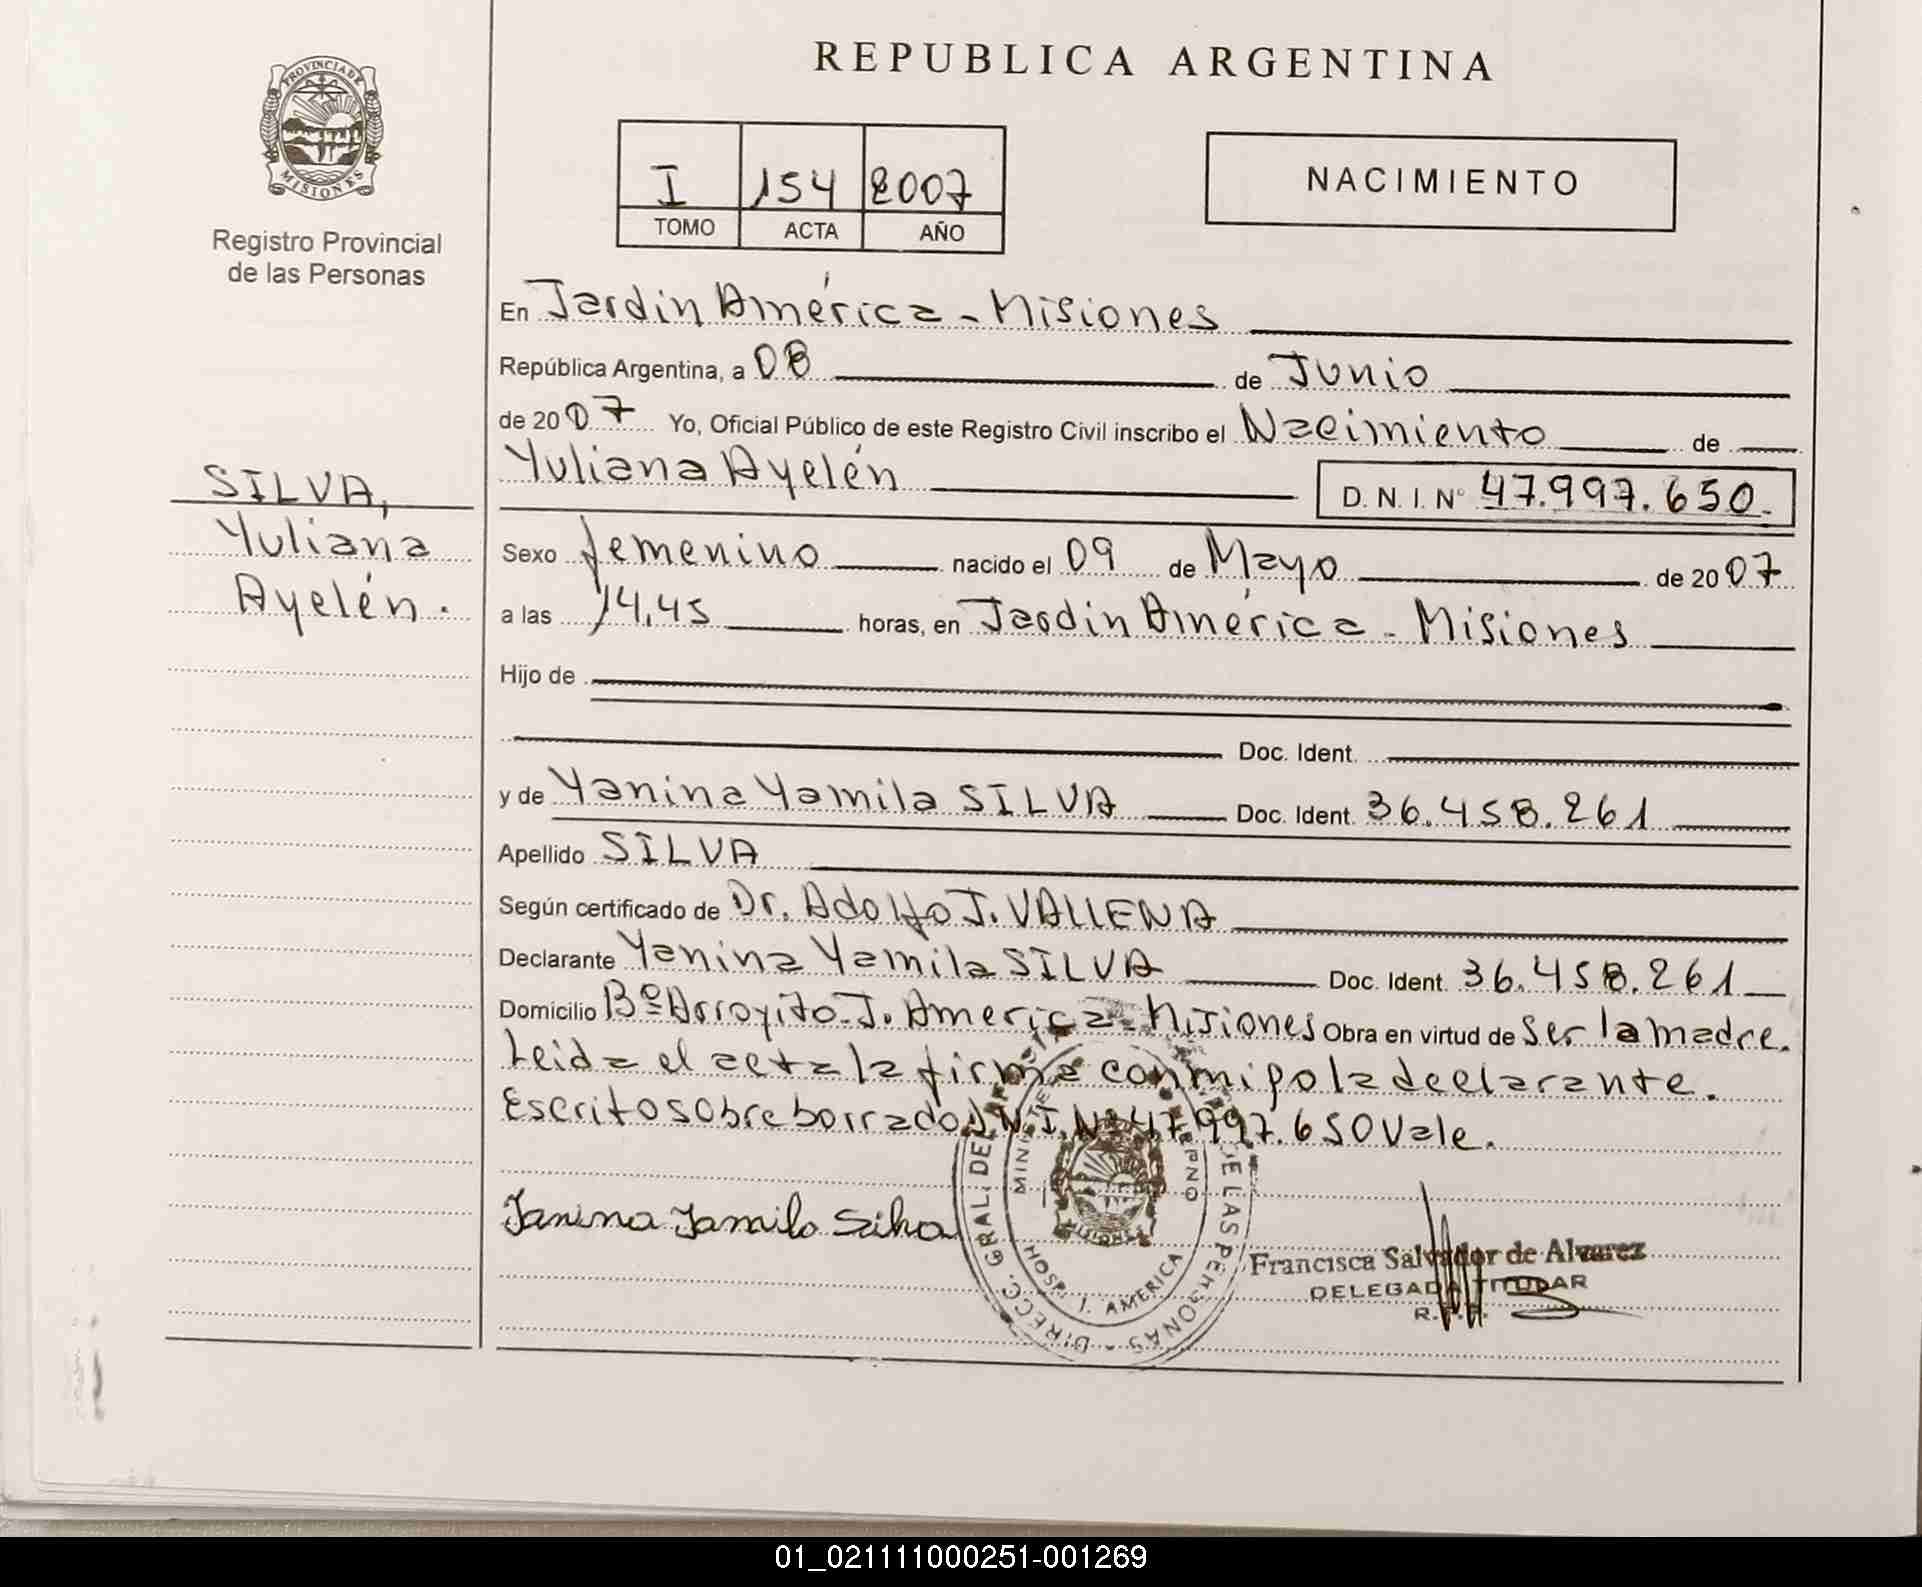 REPUBLICA ARGENTINA
PROVINCIA DE
MISIONES
Registro Provincial
de las Personas
I 154 2007
TOMO ACTA AÑO
NACIMIENTO
En Jardín América - Misiones
República Argentina, a 08 de Junio
de 2007 Yo, Oficial Público de este Registro Civil inscribo el Nacimiento de
Yuliana Ayelén D. N. I. N° 47.997.650.
SILVA,
Yuliana
Ayelén.
Sexo femenino nacido el 09 de Mayo de 2007
a las 14,45 horas, en Jardín América - Misiones
Hijo de
Doc. Ident.
y de Yanina Yamila SILVA Doc. Ident. 36.458.261
Apellido SILVA
Según certificado de Dr. Adolfo J. VALLENA
Declarante Yanina Yamila SILVA Doc. Ident. 36.458.261
Domicilio Bº Arroyito - J. America - Misiones Obra en virtud de Ser la madre.
Leida el acta la firma conmigo la declarante.
Escrito sobre borrado D.N.I. Nº 47.997.650 Vale.
Yanina Yamila Silva
DIRECC. GRAL. DEL DE LAS PERSONAS
HOSP. J. AMERICA
MISIONES
Francisca Salvador de Alvarez
DELEGADA TITULAR
R.P.P.
01_021111000251-001269